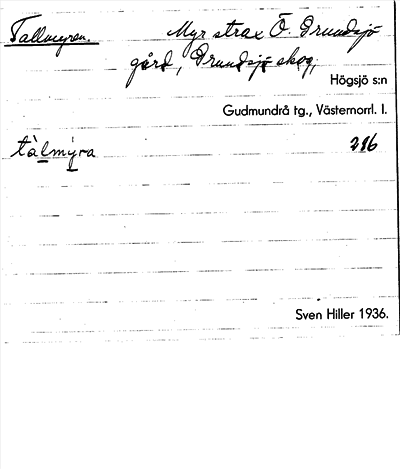 Tallmyren. Myr strax Ö. Grundsjö
gård, Grundsjö skog,
Högsjö s:n
Gudmundrå tg., Västernorrl. l.
tàlmýra 216
Sven Hiller 1936.